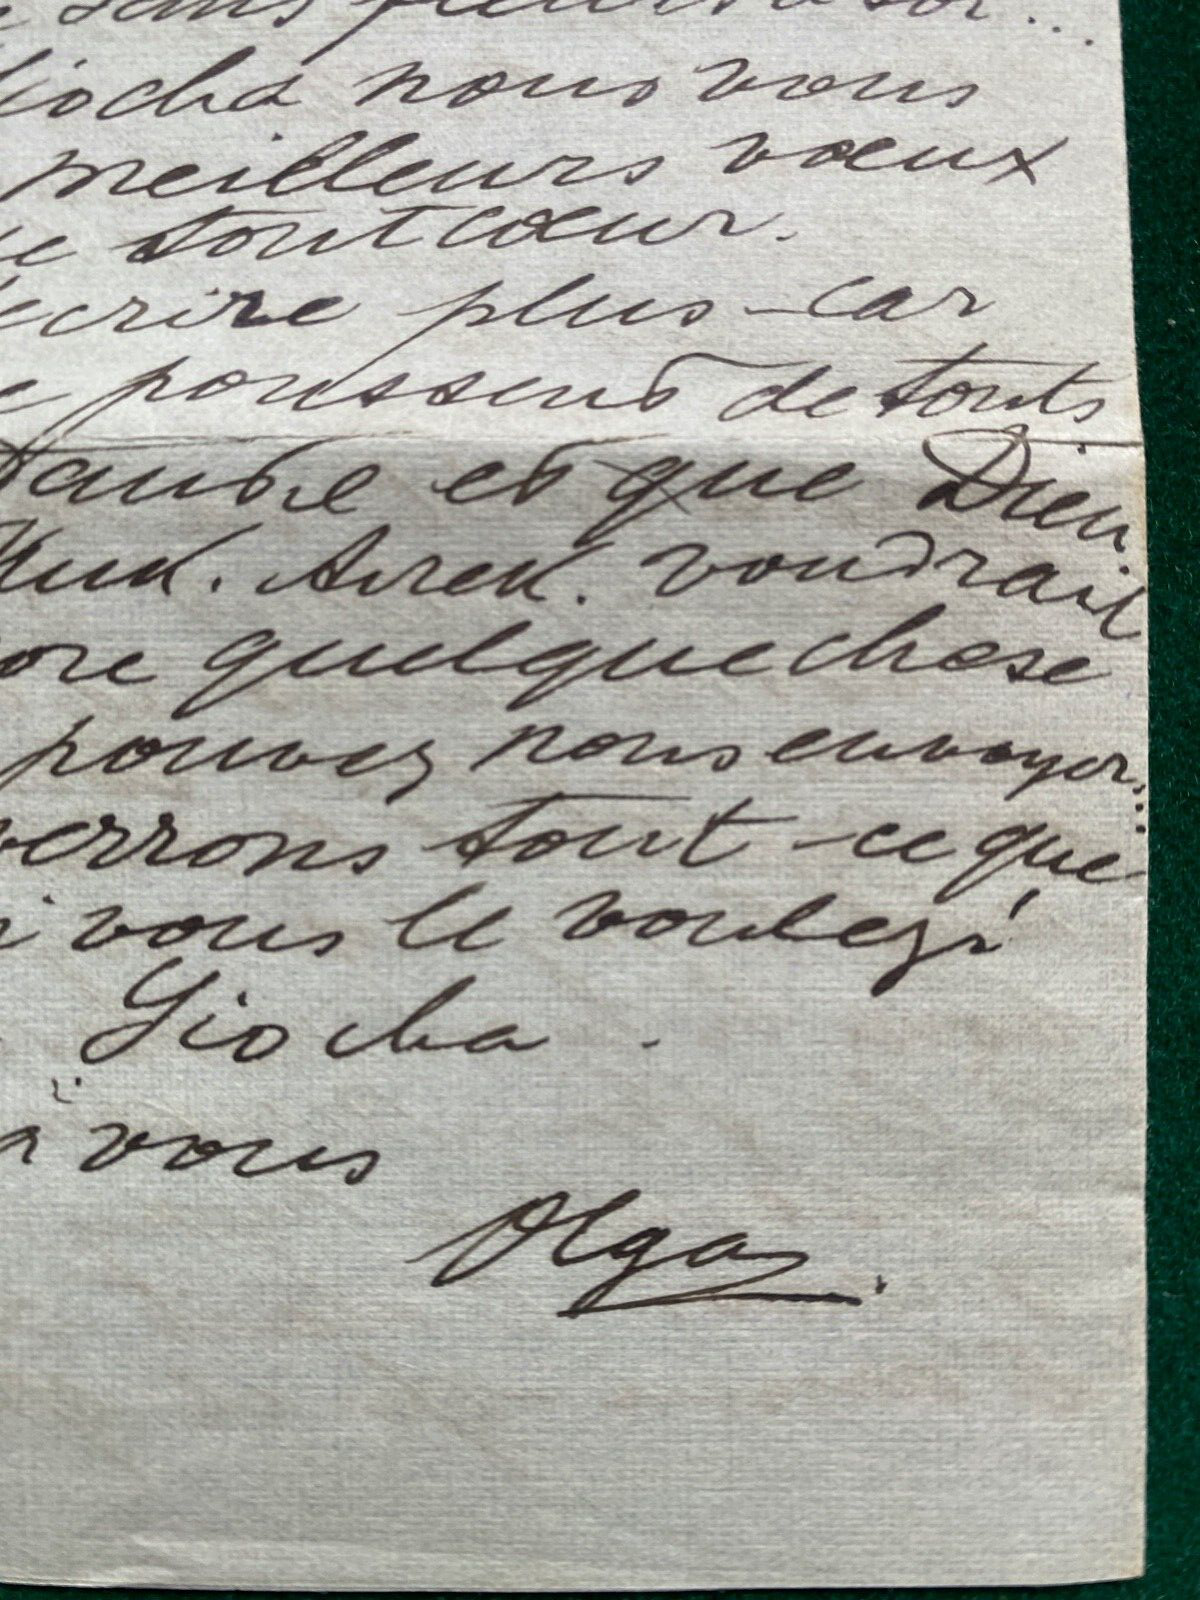 sans
iocha nous vous
meilleurs vœux
e tout cœur.
ecrire plus - car
e poussent de touts
l'autre et que Dieu
voudrait
ore quelquechose
pouvez nous envoyer...
verrons tout ce que
i vous le voulez!
Giocha.
à vous
Olga.